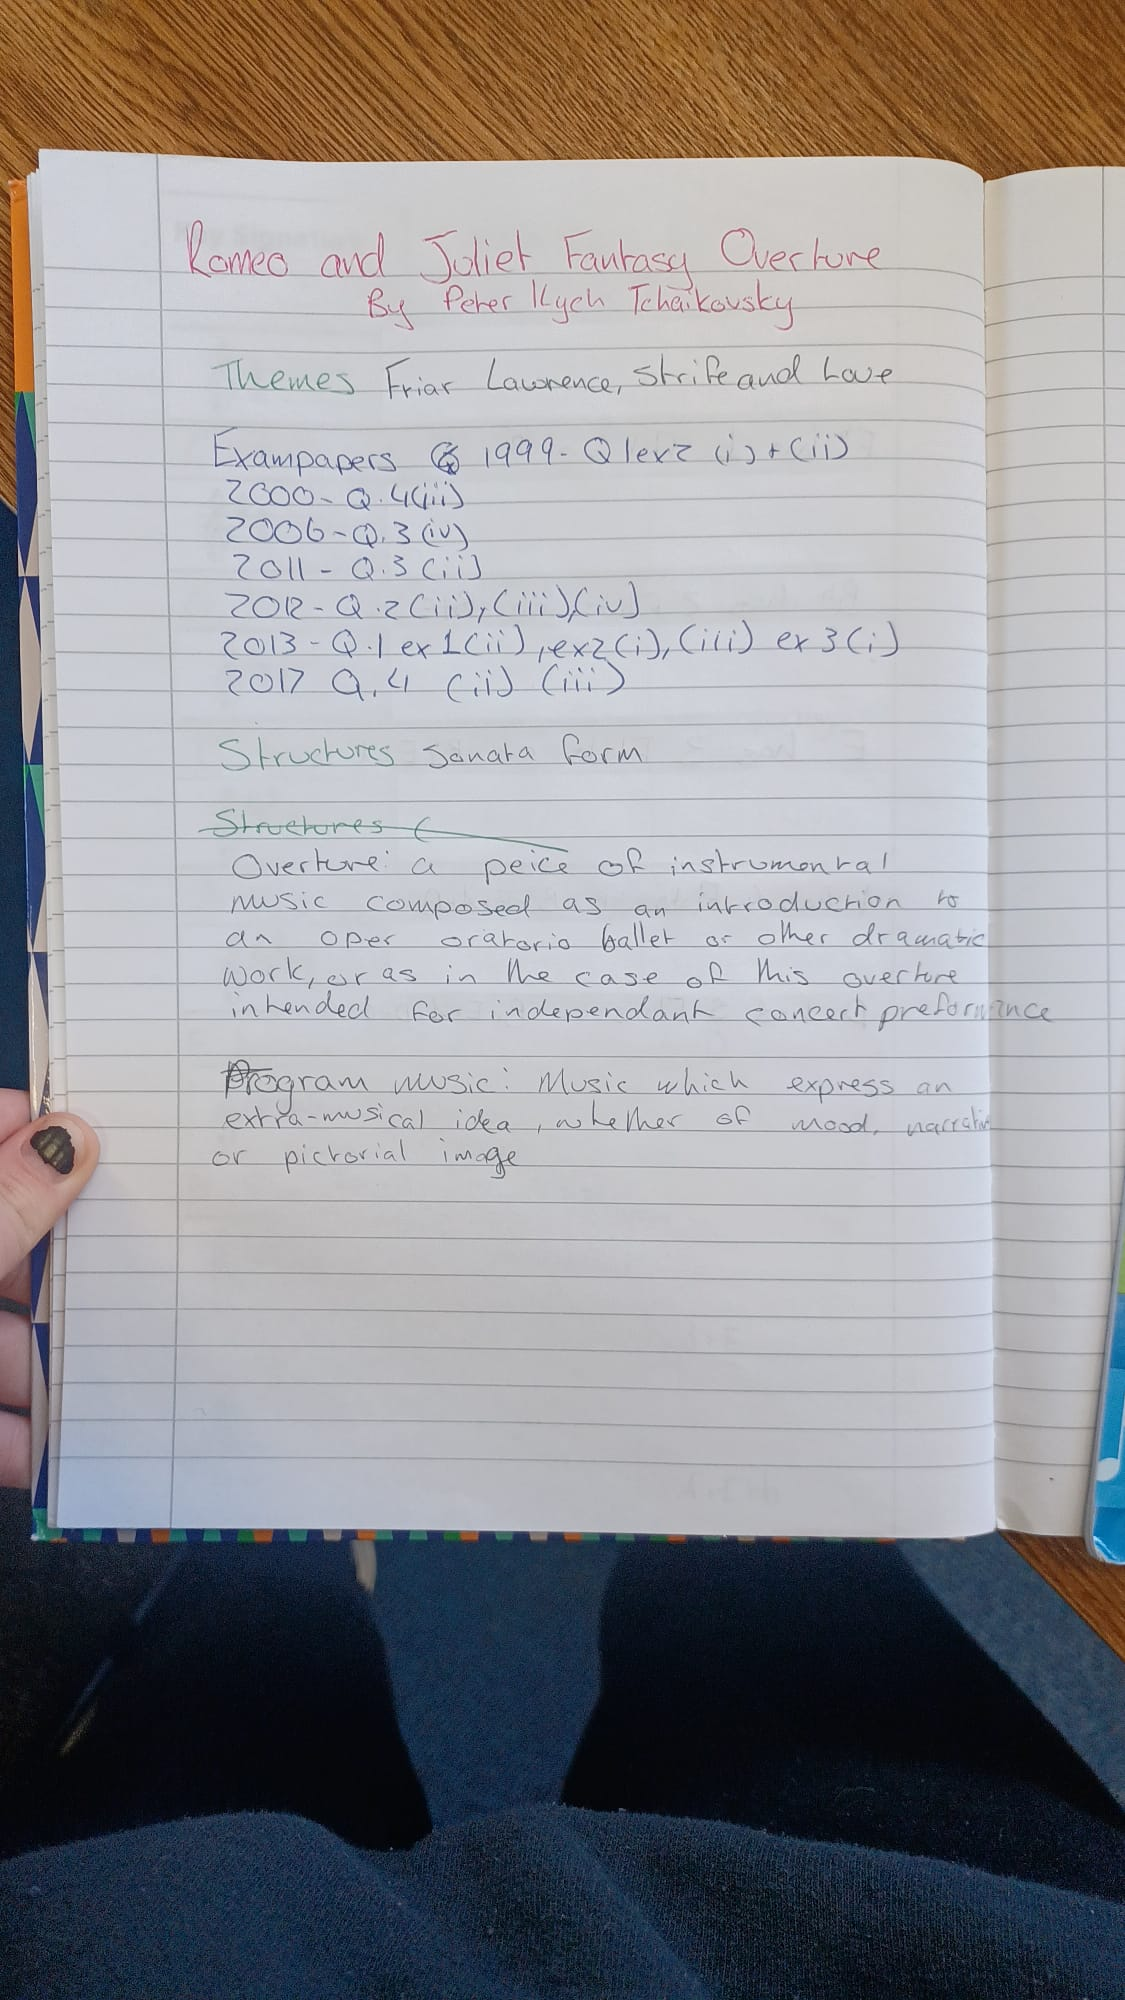 Romeo and Juliet Fantasy Overture
By Peter Ilych Tchaikovsky
Themes Friar Lawrence, Strife and Love
Exampapers 1999- Q1ex2 (i)+(ii)
2000- Q.4(iii)
2006-Q.3(iv)
2011- Q.3(ii)
2012-Q.2(ii),(iii),(iv)
2013-Q.1 ex1(ii), ex2(i),(iii) ex3(i)
2017 Q.4 (ii) (iii)
Structures Sonata form
Structures (
Overture: a peice of instrumental
music composed as an introduction to
an oper oratorio ballet or other dramatic
work, or as in the case of this overture
intended for independant concert preformance
Program music: Music which express an
extra-musical idea, whether of mood, narrative
or pictorial image